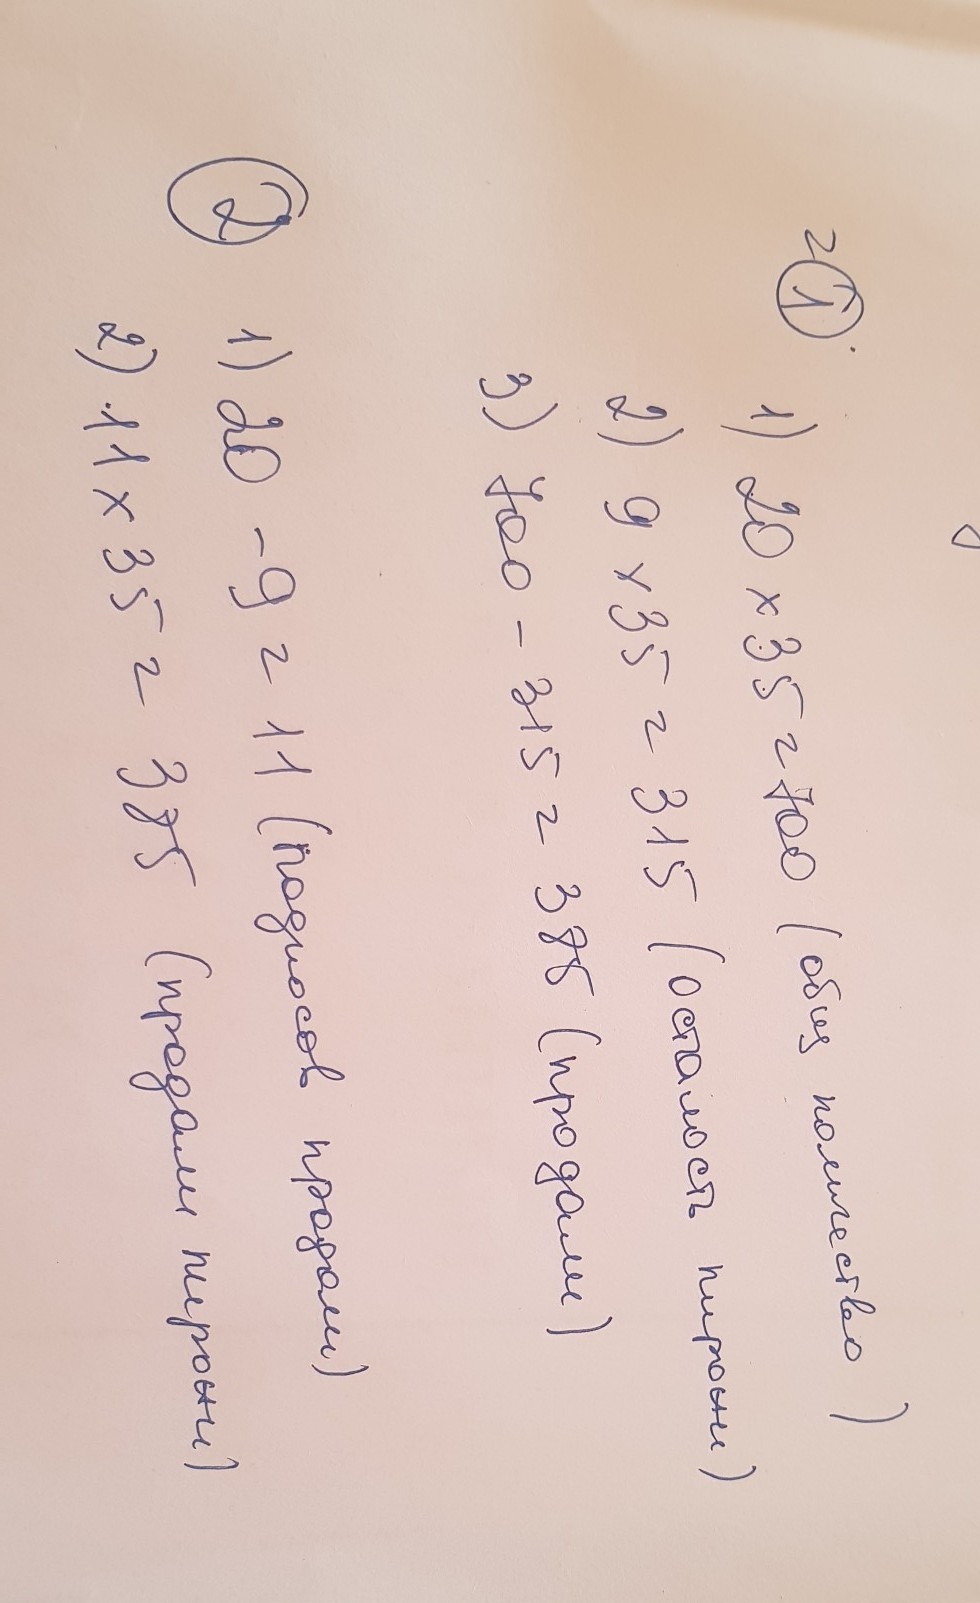 ①.
1) 20 × 35 = 700 (общ количество)
2) 9 × 35 = 315 (осталось пирожн)
3) 700 - 315 = 385 (продали)
②
1) 20 - 9 = 11 (подносов продали)
2) 11 × 35 = 385 (продали пирожн)